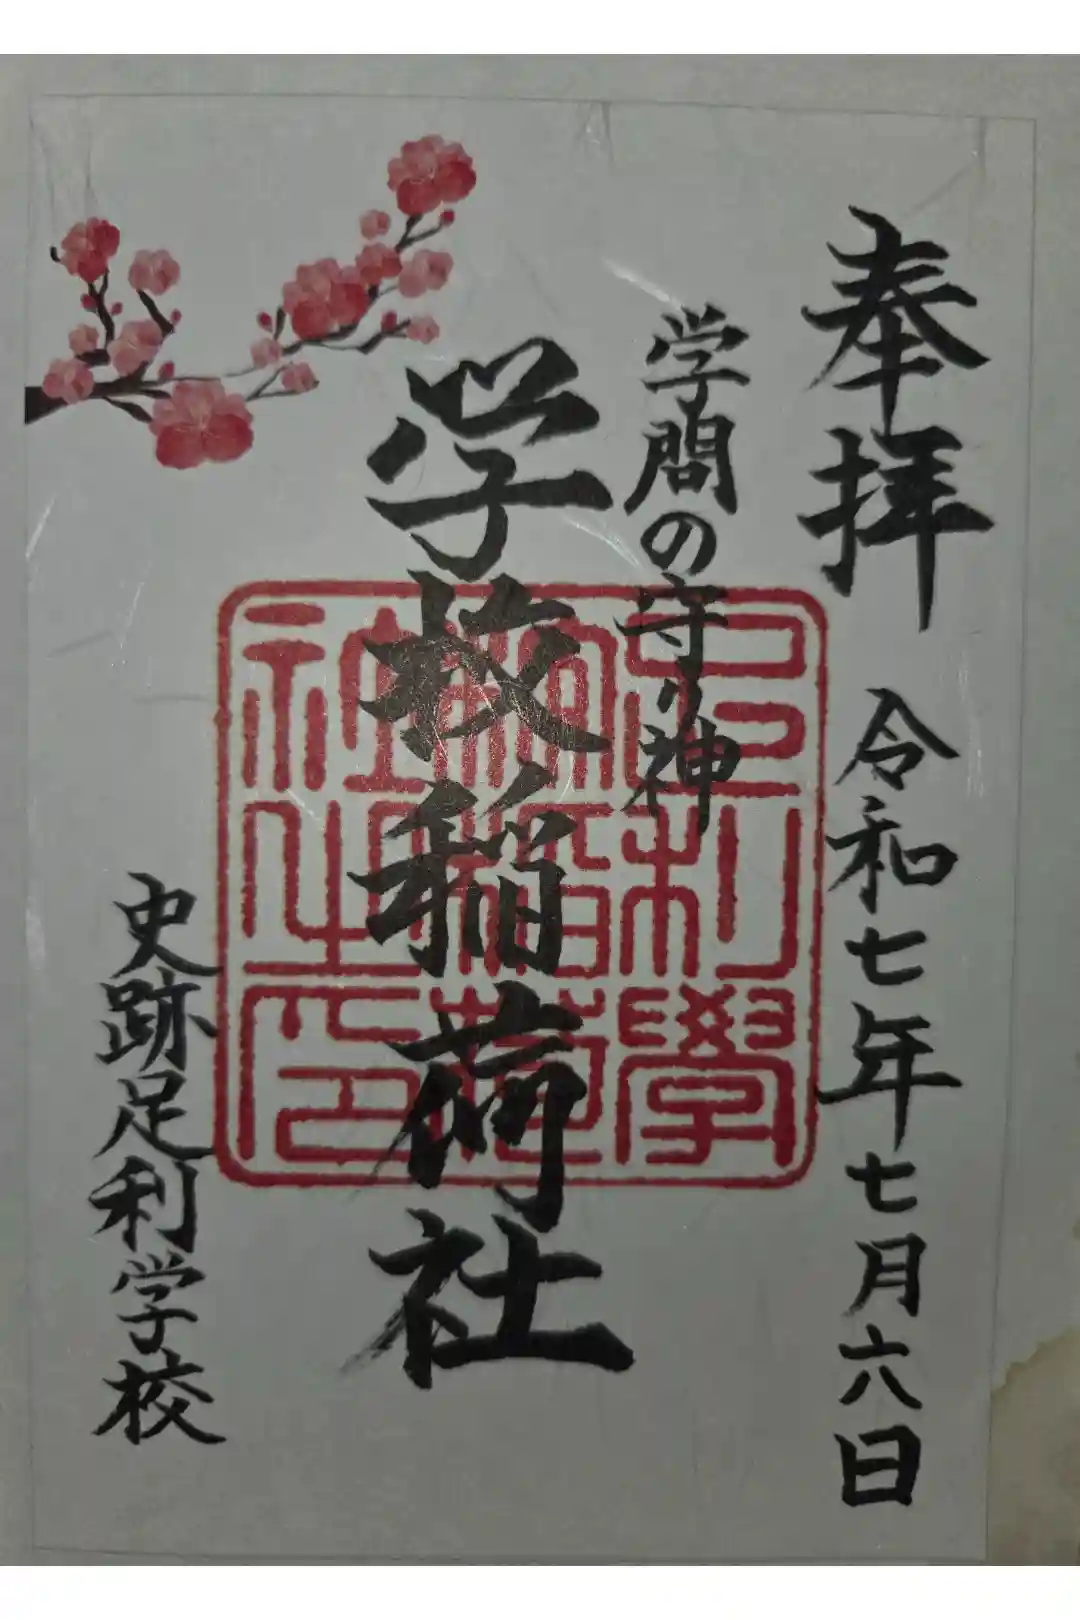 奉拝
令和七年七月六日
学問の守り神
学校稲荷社
史跡足利学校
足利學
校稲荷
社之印